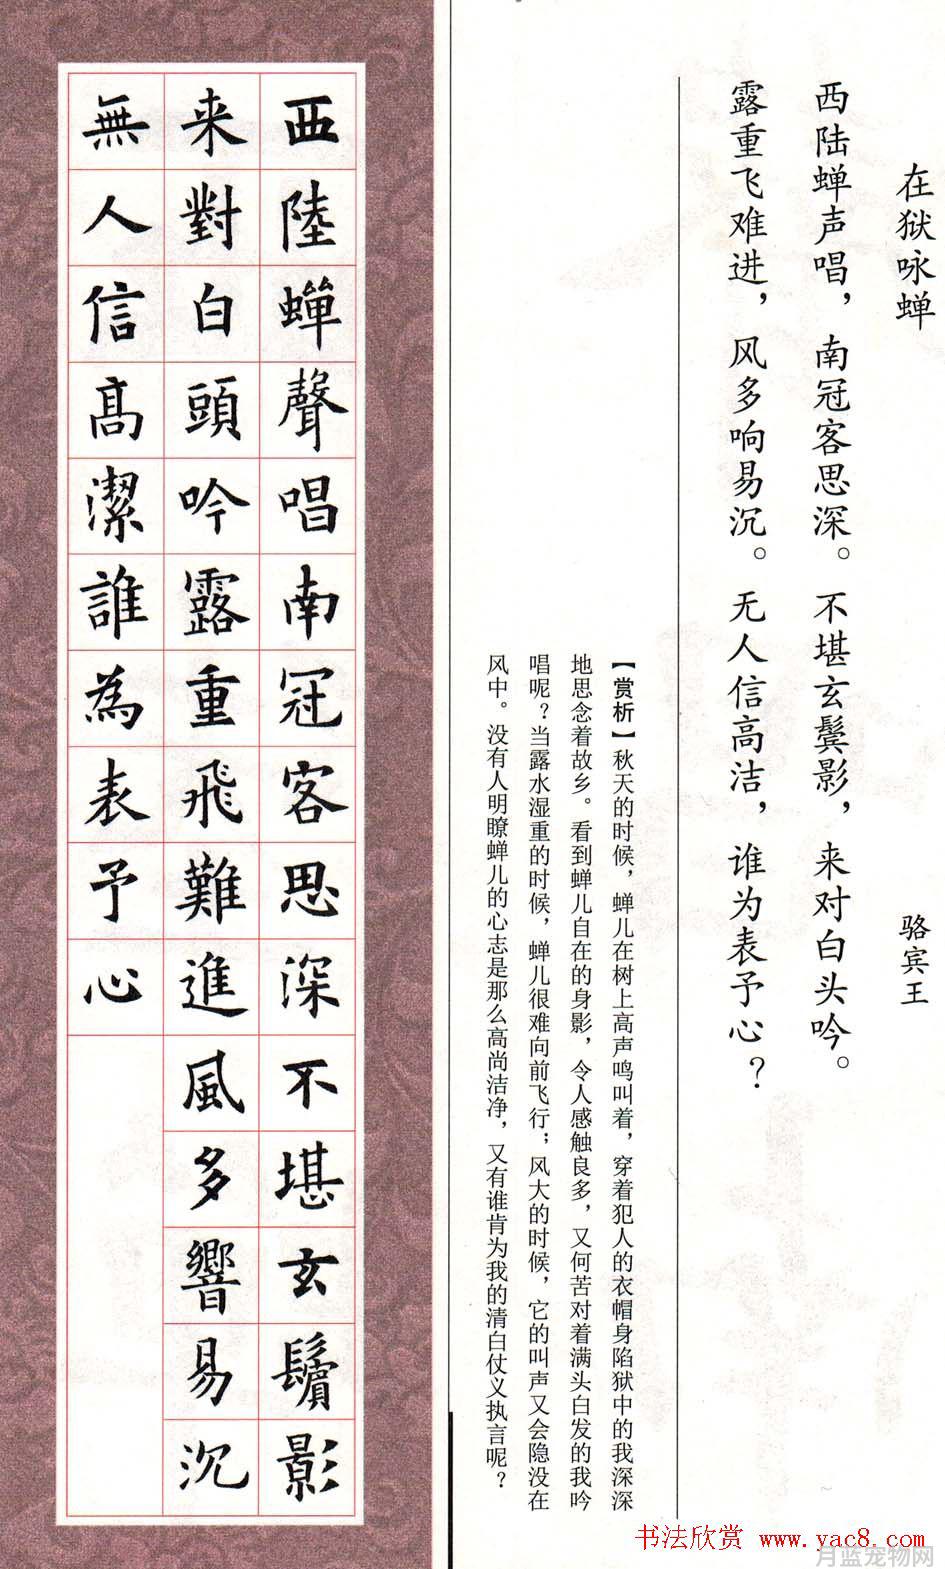 在狱咏蝉 骆宾王
西陆蝉声唱，南冠客思深。不堪玄鬓影，来对白头吟。
露重飞难进，风多响易沉。无人信高洁，谁为表予心？
【赏析】秋天的时候，蝉儿在树上高声鸣叫着，穿着犯人的衣帽身陷狱中的我深深
地思念着故乡。看到蝉儿自在的身影，令人感触良多，又何苦对着满头白发的我吟
唱呢？当露水湿重的时候，蝉儿很难向前飞行；风大的时候，它的叫声又会隐没在
风中。没有人明瞭蝉儿的心志是那么高尚洁净，又有谁肯为我的清白仗义执言呢？
西陸蟬聲唱南冠客思深不堪玄鬢影
来對白頭吟露重飛難進風多響易沉
無人信髙潔誰為表予心
书法欣赏 www.yac8.com
月蓝宠物网